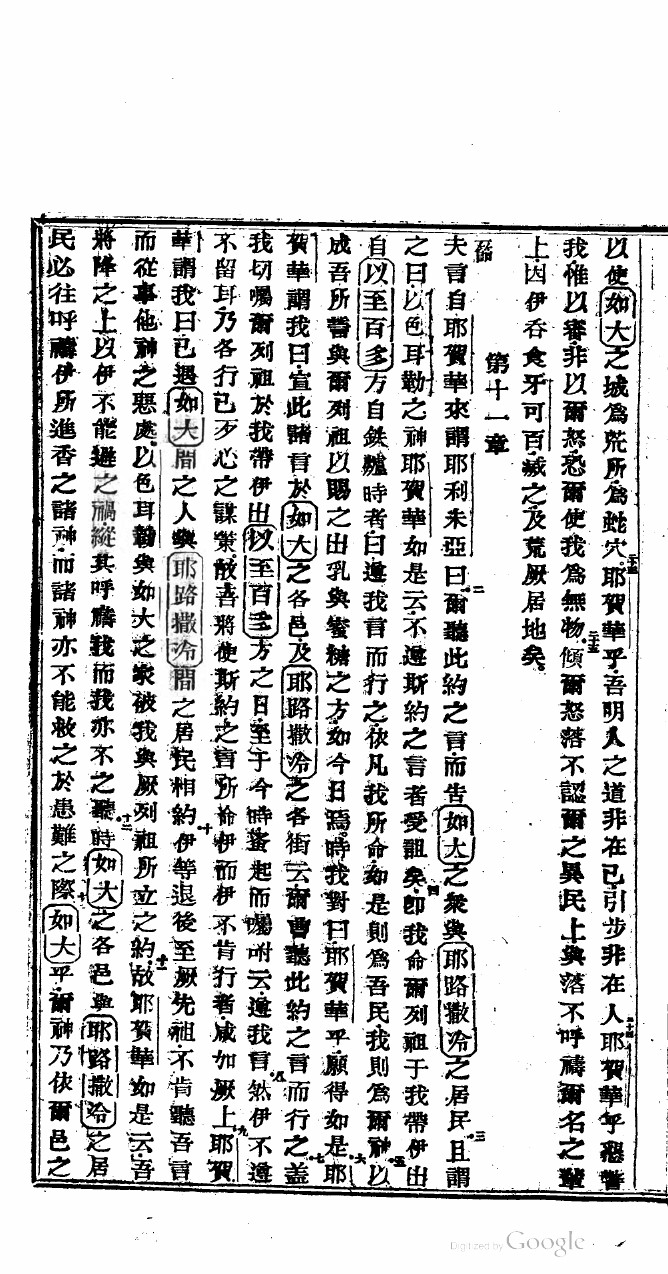 以使如大之城為荒所為蛇穴二十三耶賀華乎吾明人之道非在已引步非在人二十四耶賀華乎懲詧
我惟以審非以爾怒恐爾使我為無物二十五傾爾怒落不認爾之異民上與落不呼禱爾名之輩
上因伊吞食牙可百滅之及荒厥居地矣
第十一章
夫言自耶賀華來謂耶利未亞曰二爾聽此約之言而告如大之衆與耶路撒冷之居民三且謂
之曰以色耳勒之神耶賀華如是云不遵斯約之言者受詛矣四卽我命爾列祖于我帶伊出
自以至百多方自鉄爐時者曰遵我言而行之依凡我所命如是則為吾民我則為爾神五以
成吾所誓與爾列祖以賜之出乳與蜜糖之方如今日焉時我對曰耶賀華乎願得如是六耶
賀華謂我曰宣此諸言於如大之各邑及耶路撒冷之各街云爾曹聽此約之言而行之七蓋
我切囑爾列祖於我帶伊出以至百多方之日至于今時蚤起而囑咐云遵我言八然伊不遵
不留耳乃各行已歹心之謀策故吾將使斯約之言所命伊而伊不肯行者咸加厥上九耶賀
華謂我曰已遇如大間之人與耶路撒冷間之居民相約十伊等退後至厥先祖不肯聽吾言
而從事他神之惡處以色耳勒與如大之家被我與厥列祖所立之約十一故耶賀華如是云吾
將降之上以伊不能避之禍縱其呼禱我而我亦不之聽十二時如大之各邑與耶路撒冷之居
民必往呼禱伊所進香之諸神而諸神亦不能救之於患難之際如大乎爾神乃依爾邑之
Digitized by Google